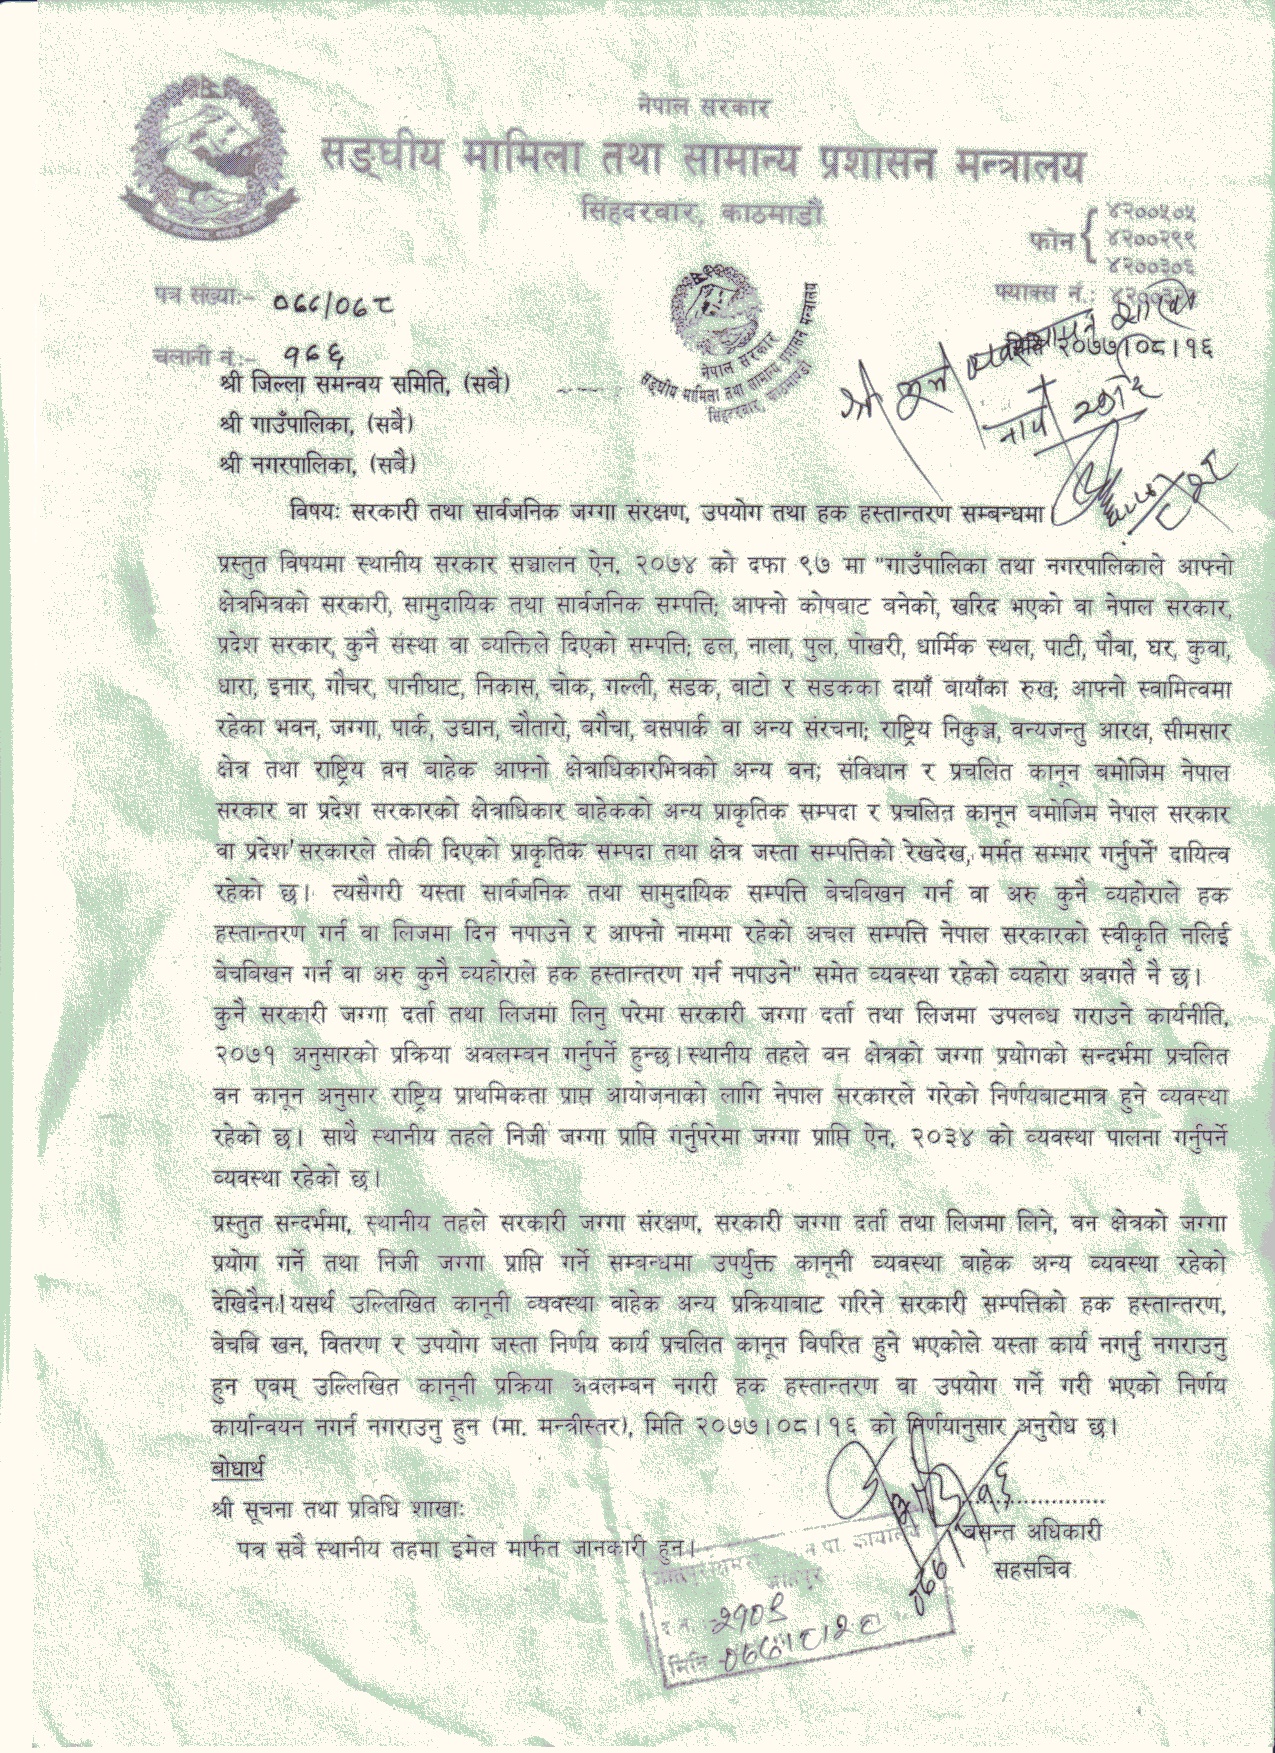 नेपाल सरकार
सङ्घीय मामिला तथा सामान्य प्रशासन मन्त्रालय
सिंहदरवार, काठमाडौं
फोन
४२००५०५
४२००२९९
४२००३०६
फ्याक्स नं.:
पत्र संख्याः- ०७७/०७८
चलानी नं:- १७६
नेपाल सरकार
सङ्घीय मामिला तथा सामान्य प्रशासन मन्त्रालय
सिंहदरवार, काठमाडौं
मिति २०७७।०८।१६
श्री जिल्ला समन्वय समिति, (सबै)
श्री गाउँपालिका, (सबै)
श्री नगरपालिका, (सबै)
विषयः सरकारी तथा सार्वजनिक जग्गा संरक्षण, उपयोग तथा हक हस्तान्तरण सम्बन्धमा।
प्रस्तुत विषयमा स्थानीय सरकार सञ्चालन ऐन, २०७४ को दफा ९७ मा "गाउँपालिका तथा नगरपालिकाले आफ्नो
क्षेत्रभित्रको सरकारी, सामुदायिक तथा सार्वजनिक सम्पत्ति; आफ्नो कोषबाट बनेको, खरिद भएको वा नेपाल सरकार,
प्रदेश सरकार, कुनै संस्था वा व्यक्तिले दिएको सम्पत्ति; ढल, नाला, पुल, पोखरी, धार्मिक स्थल, पाटी, पौवा, घर, कुवा,
धारा, इनार, गौचर, पानीघाट, निकास, चोक, गल्ली, सडक, बाटो र सडकका दायाँ बायाँका रुख; आफ्नो स्वामित्वमा
रहेका भवन, जग्गा, पार्क, उद्यान, चौतारो, बगैचा, बसपार्क वा अन्य संरचना; राष्ट्रिय निकुञ्ज, वन्यजन्तु आरक्ष, सीमसार
क्षेत्र तथा राष्ट्रिय वन बाहेक आफ्नो क्षेत्राधिकारभित्रको अन्य वन; संविधान र प्रचलित कानून बमोजिम नेपाल
सरकार वा प्रदेश सरकारको क्षेत्राधिकार बाहेकको अन्य प्राकृतिक सम्पदा र प्रचलित कानून बमोजिम नेपाल सरकार
वा प्रदेश सरकारले तोकी दिएको प्राकृतिक सम्पदा तथा क्षेत्र जस्ता सम्पत्तिको रेखदेख, मर्मत सम्भार गर्नुपर्ने" दायित्व
रहेको छ। त्यसैगरी यस्ता सार्वजनिक तथा सामुदायिक सम्पत्ति बेचबिखन गर्न वा अरु कुनै व्यहोराले हक
हस्तान्तरण गर्न वा लिजमा दिन नपाउने र आफ्नो नाममा रहेको अचल सम्पत्ति नेपाल सरकारको स्वीकृति नलिई
बेचबिखन गर्न वा अरु कुनै व्यहोराले हक हस्तान्तरण गर्न नपाउने" समेत व्यवस्था रहेको व्यहोरा अवगतै नै छ।
कुनै सरकारी जग्गा दर्ता तथा लिजमा लिनु परेमा सरकारी जग्गा दर्ता तथा लिजमा उपलब्ध गराउने कार्यनीति,
२०७१ अनुसारको प्रक्रिया अवलम्बन गर्नुपर्ने हुन्छ। स्थानीय तहले वन क्षेत्रको जग्गा प्रयोगको सन्दर्भमा प्रचलित
वन कानून अनुसार राष्ट्रिय प्राथमिकता प्राप्त आयोजनाको लागि नेपाल सरकारले गरेको निर्णयबाटमात्र हुने व्यवस्था
रहेको छ। साथै स्थानीय तहले निजी जग्गा प्राप्ति गर्नुपरेमा जग्गा प्राप्ति ऐन, २०३४ को व्यवस्था पालना गर्नुपर्ने
व्यवस्था रहेको छ।
प्रस्तुत सन्दर्भमा, स्थानीय तहले सरकारी जग्गा संरक्षण, सरकारी जग्गा दर्ता तथा लिजमा लिने, वन क्षेत्रको जग्गा
प्रयोग गर्ने तथा निजी जग्गा प्राप्ति गर्ने सम्बन्धमा उपर्युक्त कानूनी व्यवस्था बाहेक अन्य व्यवस्था रहेको
देखिदैन। यसर्थ उल्लिखित कानूनी व्यवस्था बाहेक अन्य प्रक्रियाबाट गरिने सरकारी सम्पत्तिको हक हस्तान्तरण,
बेचबि खन, वितरण र उपयोग जस्ता निर्णय कार्य प्रचलित कानून विपरित हुने भएकोले यस्ता कार्य नगर्नु नगराउनु
हुन एवम् उल्लिखित कानूनी प्रक्रिया अवलम्बन नगरी हक हस्तान्तरण वा उपयोग गर्ने गरी भएको निर्णय
कार्यान्वयन नगर्न नगराउनु हुन (मा. मन्त्रीस्तर), मिति २०७७।०८।१६ को निर्णयानुसार अनुरोध छ।
बोधार्थ
श्री सूचना तथा प्रविधि शाखाः
पत्र सबै स्थानीय तहमा इमेल मार्फत जानकारी हुन।
बसन्त अधिकारी
सहसचिव
मिति